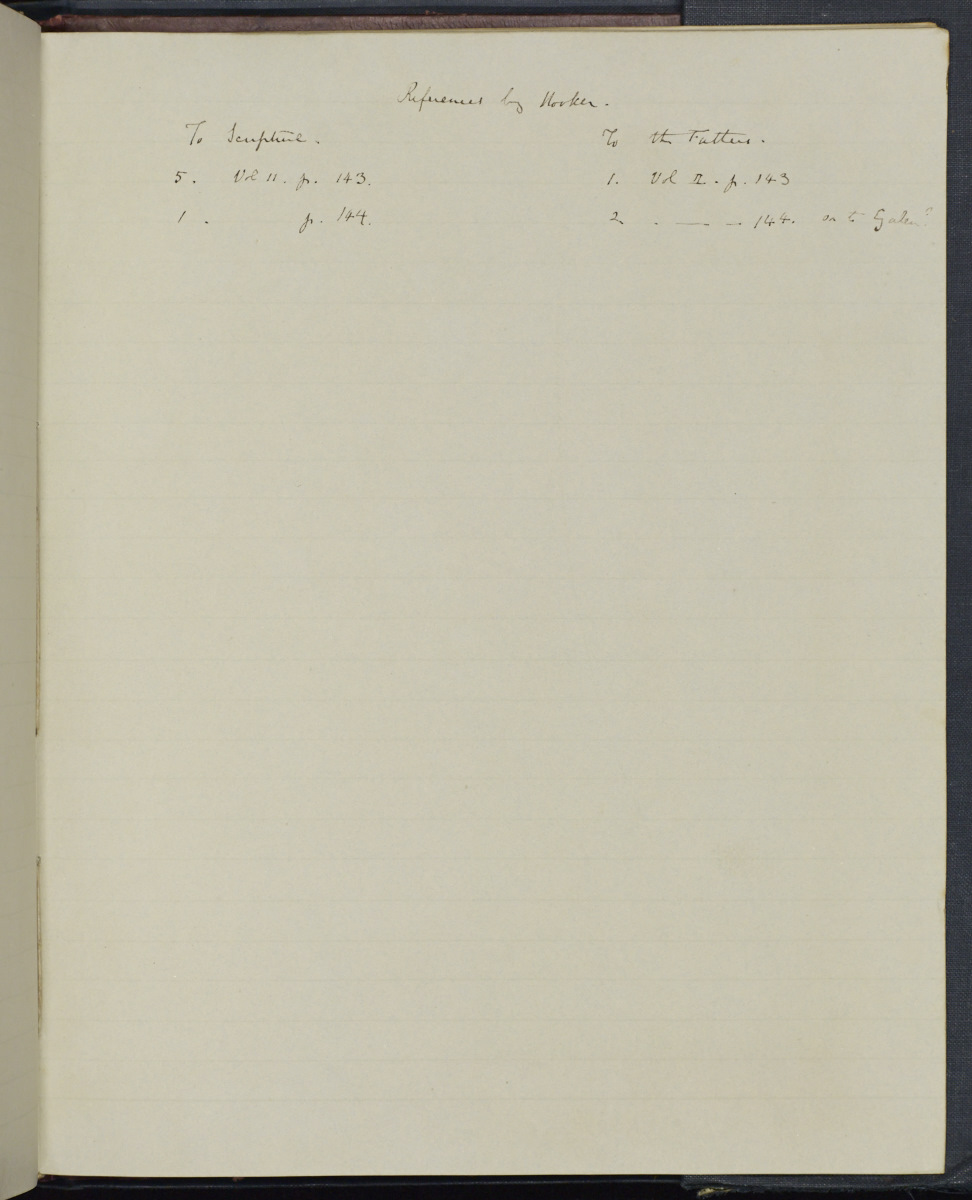 References by Hooker.
To Scripture.
5. Vol II. p. 143.
1. p. 144.
To the Fathers.
1. Vol II. p. 143
2 . — — 144. to Galen?